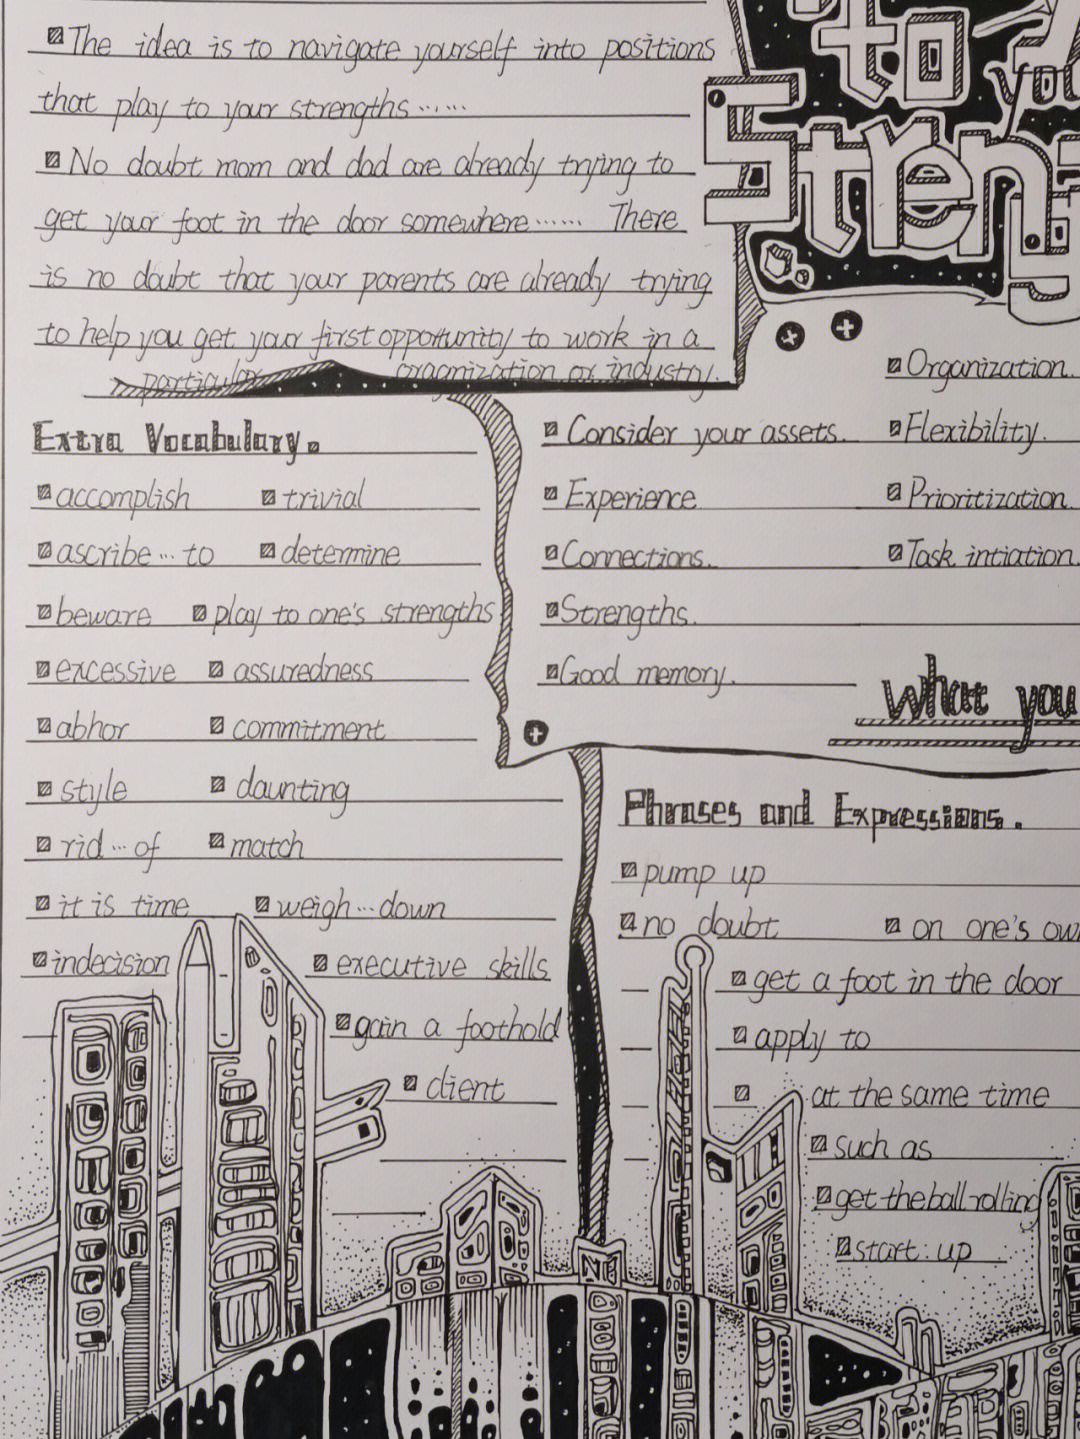 The idea is to navigate yourself into positions
that play to your strengths……
No doubt mom and dad are already trying to
get your foot in the door somewhere…… There
is no doubt that your parents are already trying
to help you get your first opportunity to work in a
particular oragnization or industry.
to
you
Streng
Extra Vocabulary.
accomplish trivial
ascribe…to determine
beware play to one's strengths
excessive assuredness
abhor commitment
style daunting
rid…of match
it is time weigh…down
indecision executive skills
gain a foothold
client
Organization.
Consider your assets. Flexibility.
Experience Prioritization.
Connections. Task intiation.
Strengths.
Good memory.
What you
Phrases and Expressions.
pump up
no doubt on one's own
get a foot in the door
apply to
at the same time
such as
get the ball rolling
start up